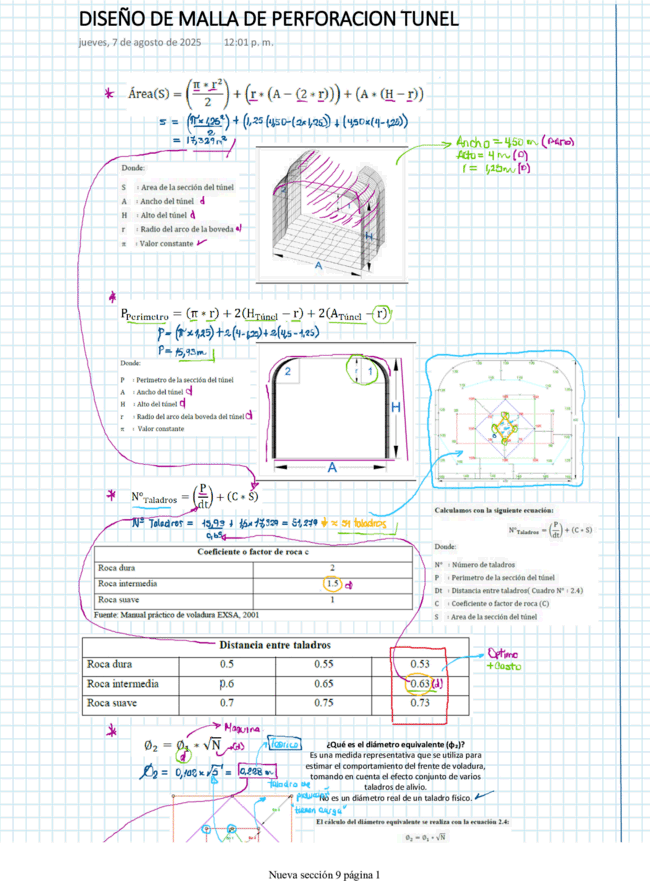 DISEÑO DE MALLA DE PERFORACION TUNEL
jueves, 7 de agosto de 2025 12:01 p. m.
* Área(S) = (π * r² / 2) + (r * (A − (2 * r))) + (A * (H − r))
S = (π×1,25² / 2) + (1,25 (4,50−(2×1,25)) + (4,50×(4−1,25))
= 17,329 m²
Ancho = 4,50 m (Dato)
Alto = 4 m (D)
r = 1,25m (D)
Donde:
S : Area de la sección del túnel
A : Ancho del túnel d
H : Alto del túnel d
r : Radio del arco de la boveda d
π : Valor constante
H
A
* P Perimetro = (π * r) + 2(H Túnel − r) + 2(A Túnel − r)
P = (π×1,25) + 2(4−1,25) + 2(4,5−1,25)
P = 15,93m
Donde:
P : Perimetro de la sección del túnel
A : Ancho del túnel d
H : Alto del túnel d
r : Radio del arco dela boveda del túnel d
π : Valor constante
2
r
1
H
A
* N° Taladros = (P / dt) + (C * S)
N° Taladros = 15,93 / 0,63 + 1,5×17,329 = 51,279 ≈ 51 taladros
Calculamos con la siguiente ecuación:
N° Taladros = (P / dt) + (C * S)
Donde:
N° : Número de taladros
P : Perimetro de la sección del túnel
Dt : Distancia entre taladros( Cuadro N° : 2.4)
C : Coeficiente o factor de roca (C)
S : Area de la sección del túnel
Coeficiente o factor de roca c
Roca dura 2
Roca intermedia 1.5 d
Roca suave 1
Fuente: Manual práctico de voladura EXSA, 2001
Distancia entre taladros
Roca dura 0.5 0.55 0.53
Roca intermedia 0.6 0.65 0.63 (d)
Roca suave 0.7 0.75 0.73
Optimo
+ Costo
* Ø₂ = Ø₁ * √N (d)
d
Maquina
Teorico
Ø₂ = 0,102 × √5 = 0,228 m
taladro de
produccion
"tienen carga"
¿Qué es el diámetro equivalente (ϕ₂)?
Es una medida representativa que se utiliza para
estimar el comportamiento del frente de voladura,
tomando en cuenta el efecto conjunto de varios
taladros de alivio.
No es un diámetro real de un taladro físico.
El cálculo del diámetro equivalente se realiza con la ecuación 2.4:
Ø₂ = Ø₁ * √N
Nueva sección 9 página 1